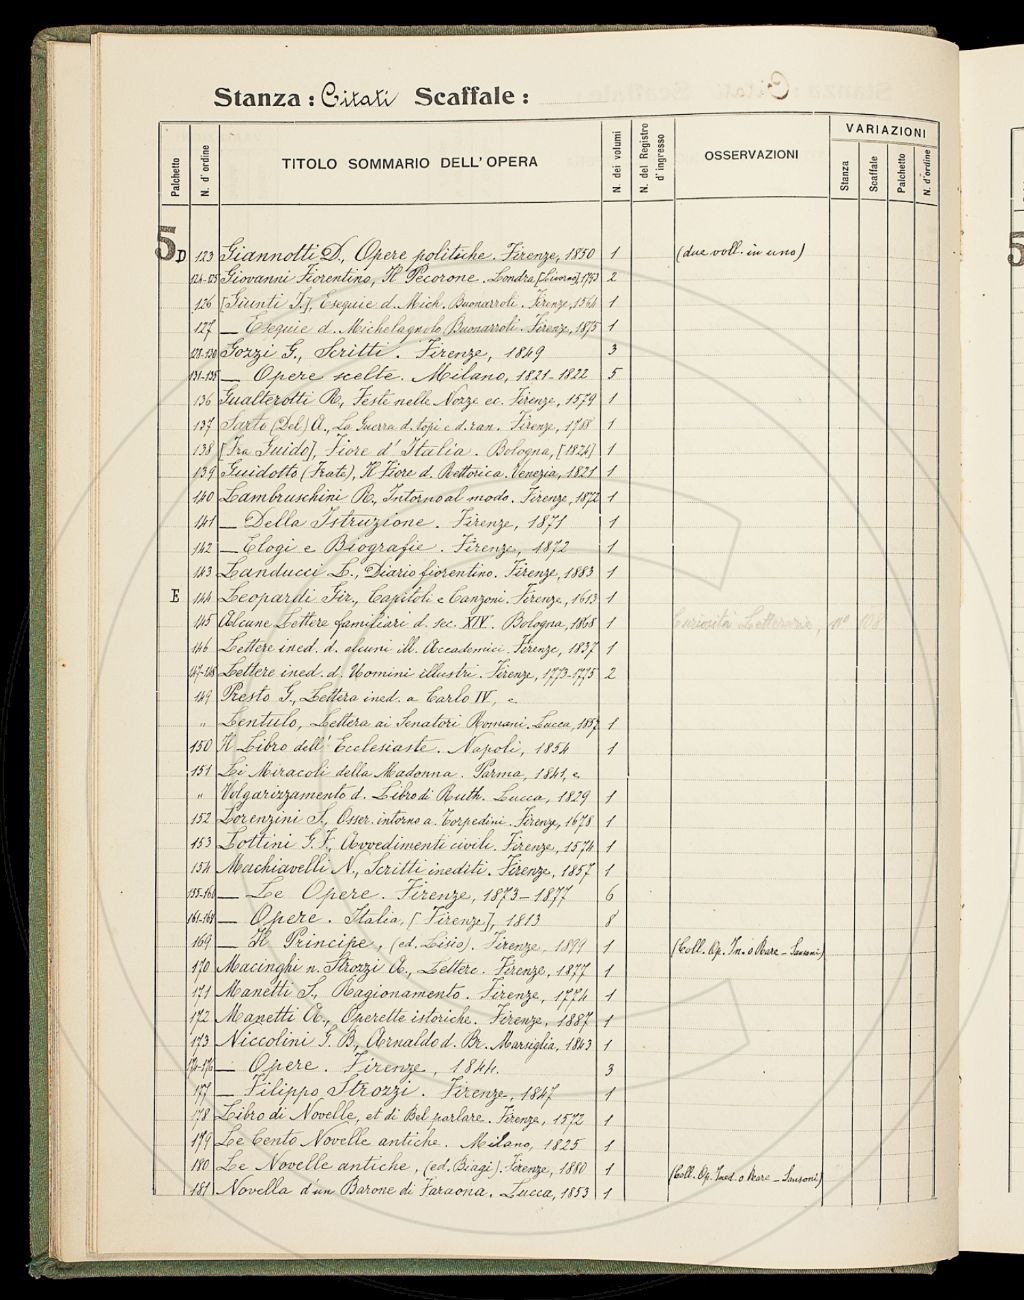 Stanza: Citati Scaffale:
Palchetto N. d'ordine TITOLO SOMMARIO DELL'OPERA N. dei volumi N. del Registro d'ingresso OSSERVAZIONI VARIAZIONI Stanza Scaffale Palchetto N. d'ordine
5
D 123 Giannotti D., Opere politiche. Firenze, 1850 1 (due voll. in uno)
124-125 Giovanni Fiorentino, Il Pecorone. Londra [Livorno], 1793 2
126 [Giunti J.], Esequie d. Mich. Buonarroli. Firenze, 1564 1
127 — Esequie d. Michelagnolo Buonarroli. Firenze, 1875 1
128-130 Gozzi G., Scritti. Firenze, 1849 3
131-135 — Opere scelte. Milano, 1821-1822 5
136 Gualterotti R., Feste nelle Nozze ec. Firenze, 1579 1
137 Sarto (Del) A., La Guerra d. topi e d. ran. Firenze, 1788 1
138 [Fra Guido], Fiore d'Italia. Bologna, [1824] 1
139 Guidotto (Frate), Il Fiore d. Rettorica. Venezia, 1821 1
140 Lambruschini R., Intorno al modo. Firenze, 1872 1
141 — Della Istruzione. Firenze, 1871 1
142 — Elogi e Biografie. Firenze, 1872 1
143 Landucci L., Diario fiorentino. Firenze, 1883 1
E 144 Leopardi Gir., Capitoli e Canzoni. Firenze, 1613 1
145 Alcune Lettere familiari d. sec. XIV. Bologna, 1868 1 Curiosità Letterarie, n° 108
146 Lettere ined. d. alcuni ill. Accademici. Firenze, 1837 1
147-148 Lettere ined. d. Uomini illustri. Firenze, 1773-1775 2
149 Presto G., Lettera ined. a Carlo IV, e
" Lentulo, Lettera ai Senatori Romani. Lucca, 1857 1
150 Il Libro dell'Ecclesiaste. Napoli, 1854 1
151 Li Miracoli della Madonna. Parma, 1841, e
" Volgarizzamento d. Libro di Ruth. Lucca, 1829 1
152 Lorenzini S., Osser. intorno a. Torpedini. Firenze, 1678 1
153 Lottini G. F., Avvedimenti civili. Firenze, 1574 1
154 Machiavelli N., Scritti inediti. Firenze, 1857 1
155-160 — Le Opere. Firenze, 1873-1877 6
161-168 — Opere. Italia, [Firenze], 1813 8
169 — Il Principe, (ed. Lisio). Firenze, 1899 1 (Coll. Op. In. o Rare - Sansoni)
170 Macinghi n. Strozzi A., Lettere. Firenze, 1877 1
171 Manetti S., Ragionamento. Firenze, 1774 1
172 Manetti A., Operette istoriche. Firenze, 1887 1
173 Niccolini G. B., Arnaldo d. Br. Marsiglia, 1843 1
174-176 — Opere. Firenze, 1844. 3
177 — Filippo Strozzi. Firenze, 1847 1
178 Libro di Novelle, et di Bel parlare. Firenze, 1572 1
179 Le Cento Novelle antiche. Milano, 1825 1
180 Le Novelle antiche, (ed. Biagi). Firenze, 1880 1 (Coll. Op. Ined. o Rare - Sansoni)
181 Novella d'un Barone di Faraona. Lucca, 1853 1
5